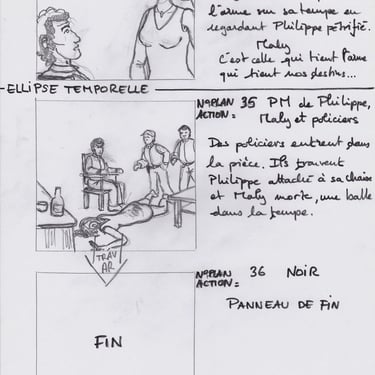 l'arme sur sa tempe en
regardant Philippe pétrifié.
Maly
C'est celle qui tient l'arme
qui tient nos destins...
ELLIPSE TEMPORELLE
N° PLAN 35 PM de Philippe,
ACTION = Maly et policiers
Des policiers entrent dans
la pièce. Ils trouvent
Philippe attaché à sa chaise
et Maly morte, une balle
dans la tempe.
TRAV
AR
N° PLAN 36 NOIR
ACTION =
PANNEAU DE FIN
FIN